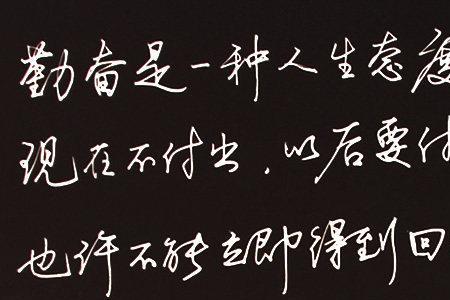 勤奋是一种人生态度
现在不付出，以后要付
也许不能立即得到回